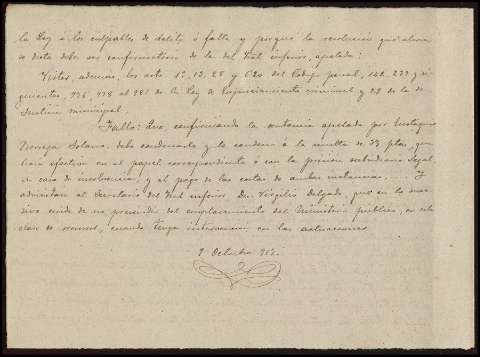 la Ley á los culpables de delito ó falta y porque la resolución que ahora
se dicta debe ser confirmatoria de la del Tral inferior, apelada:
Vistos, además, los arts 1º, 13, 28 y 620 del Código penal, 142, 239 y si-
guientes, 976, 978 al 981 de la Ley de Enjuiciamiento criminal y 28 de la de
Justicia municipal.
Fallo: Que confirmando la sentencia apelada por Eustaquio
Noreña Solano, debo condenarle y le condeno á la multa de 25 ptas, que
hará efectiva en el papel correspondiente ó con la prisión subsidiaria legal
en caso de insolvencia, y al pago de las costas de ambas instancias. Y
adviértase al Secretario del Tral inferior, Dn. Virgilio Delgado, que en lo suce-
sivo cuide de no prescindir del emplazamiento del Ministerio público, en esta
clase de recursos, cuando tenga intervención en las actuaciones
9 Octubre